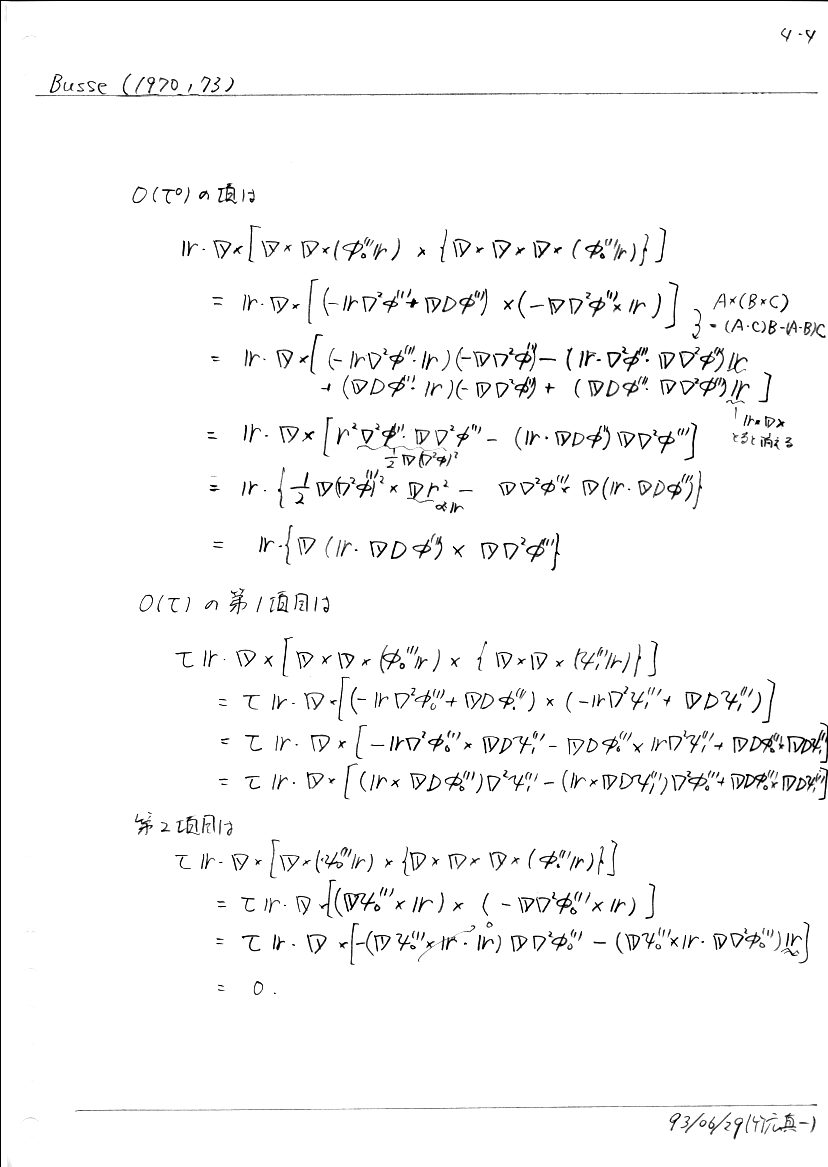 4-4
Busse (1970, 73)
O(τ⁰) の項は
𝕣·∇×[∇×∇×(φ₀⁽¹⁾𝕣) × {∇×∇×∇×(φ₀⁽¹⁾𝕣)}]
= 𝕣·∇×[(-𝕣∇²φ⁽¹⁾+∇Dφ⁽¹⁾) ×(-∇∇²φ⁽¹⁾×𝕣)] A×(B×C)
= (A·C)B-(A·B)C
= 𝕣·∇×[(-𝕣∇²φ⁽¹⁾·𝕣)(-∇∇²φ⁽¹⁾)-(𝕣·∇²φ⁽¹⁾·∇∇²φ⁽¹⁾)𝕣
+ (∇Dφ⁽¹⁾·𝕣)(-∇∇²φ⁽¹⁾)+ (∇Dφ⁽¹⁾·∇∇²φ⁽¹⁾)𝕣]
𝕣·∇×
とると消える
= 𝕣·∇×[r²∇²φ⁽¹⁾·∇∇²φ⁽¹⁾ - (𝕣·∇Dφ⁽¹⁾)∇∇²φ⁽¹⁾]
½∇(∇²φ)²
= 𝕣·{½∇(∇²φ⁽¹⁾)²×∇r² - ∇∇²φ⁽¹⁾×∇(𝕣·∇Dφ⁽¹⁾)}
∝𝕣
= 𝕣·{∇(𝕣·∇Dφ⁽¹⁾)×∇∇²φ⁽¹⁾}
O(τ) の第1項目は
τ𝕣·∇×[∇×∇×(φ₀⁽¹⁾𝕣) × {∇×∇×(ψ₁⁽¹⁾𝕣)}]
= τ𝕣·∇×[(-𝕣∇²φ₀⁽¹⁾+∇Dφ₀⁽¹⁾)×(-𝕣∇²ψ₁⁽¹⁾+∇Dψ₁⁽¹⁾)]
= τ𝕣·∇×[-𝕣∇²φ₀⁽¹⁾×∇Dψ₁⁽¹⁾-∇Dφ₀⁽¹⁾×𝕣∇²ψ₁⁽¹⁾+∇Dφ₀⁽¹⁾×∇Dψ₁⁽¹⁾]
= τ𝕣·∇×[(𝕣×∇Dφ₀⁽¹⁾)∇²ψ₁⁽¹⁾-(𝕣×∇Dψ₁⁽¹⁾)∇²φ₀⁽¹⁾+∇Dφ₀⁽¹⁾×∇Dψ₁⁽¹⁾]
第2項目は
τ𝕣·∇×[∇×(ψ₀⁽¹⁾𝕣)×{∇×∇×∇×(φ₀⁽¹⁾𝕣)}]
= τ𝕣·∇×[(∇ψ₀⁽¹⁾×𝕣)×(-∇∇²φ₀⁽¹⁾×𝕣)]
= τ𝕣·∇×[-(∇ψ₀⁽¹⁾×𝕣·𝕣)∇∇²φ₀⁽¹⁾ - (∇ψ₀⁽¹⁾×𝕣·∇∇²φ₀⁽¹⁾)𝕣]
0
= 0.
93/06/29(竹広真一)